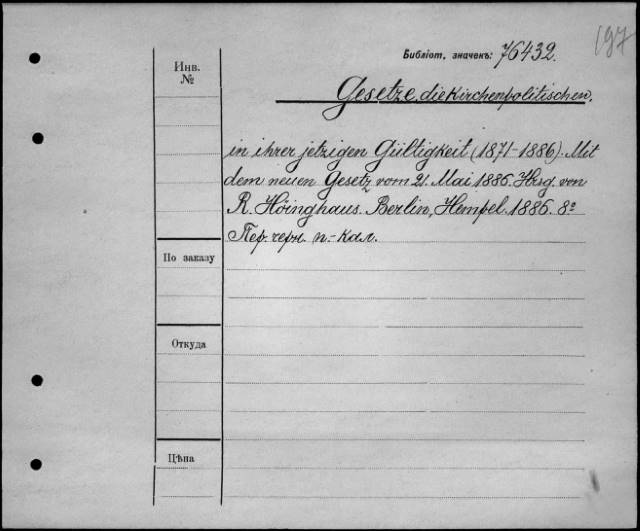 197
Библіот. значекъ: 76432.
Инв. №
Gesetze, die kirchenpolitischen,
in ihrer jetzigen Gültigkeit (1871-1886). Mit
dem neuen Gesetz vom 21. Mai 1886. Hrsg. von
R. Höinghaus. Berlin, Hempel. 1886. 8º
Пер. черн. п.-кал.
По заказу
Откуда
Цѣна